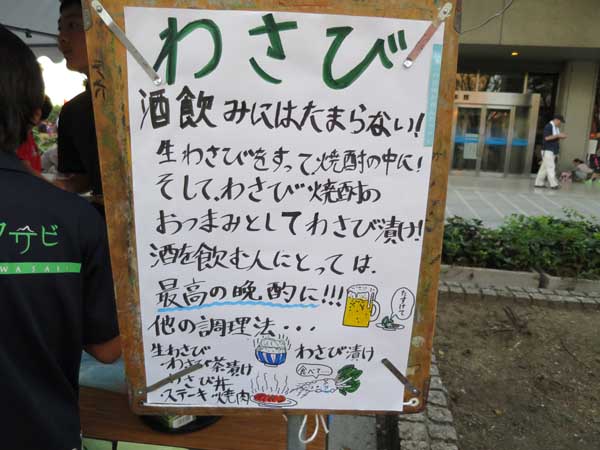 わさび
酒飲みにはたまらない!
生わさびをすって焼酎の中に!
そして、わさび焼酎の
おつまみとしてわさび漬け!
酒を飲む人にとっては、
最高の晩酌に!!!
たすけて
他の調理法・・・
生わさび
わさび漬け
・わさび茶漬け
・わさび丼
食べて
・ステーキ・焼肉
サビ
WASABI